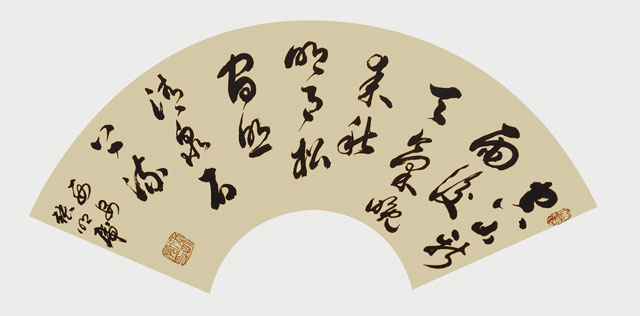 空山新
雨後
天氣晚
來秋
明月松
間照
清泉石
上流